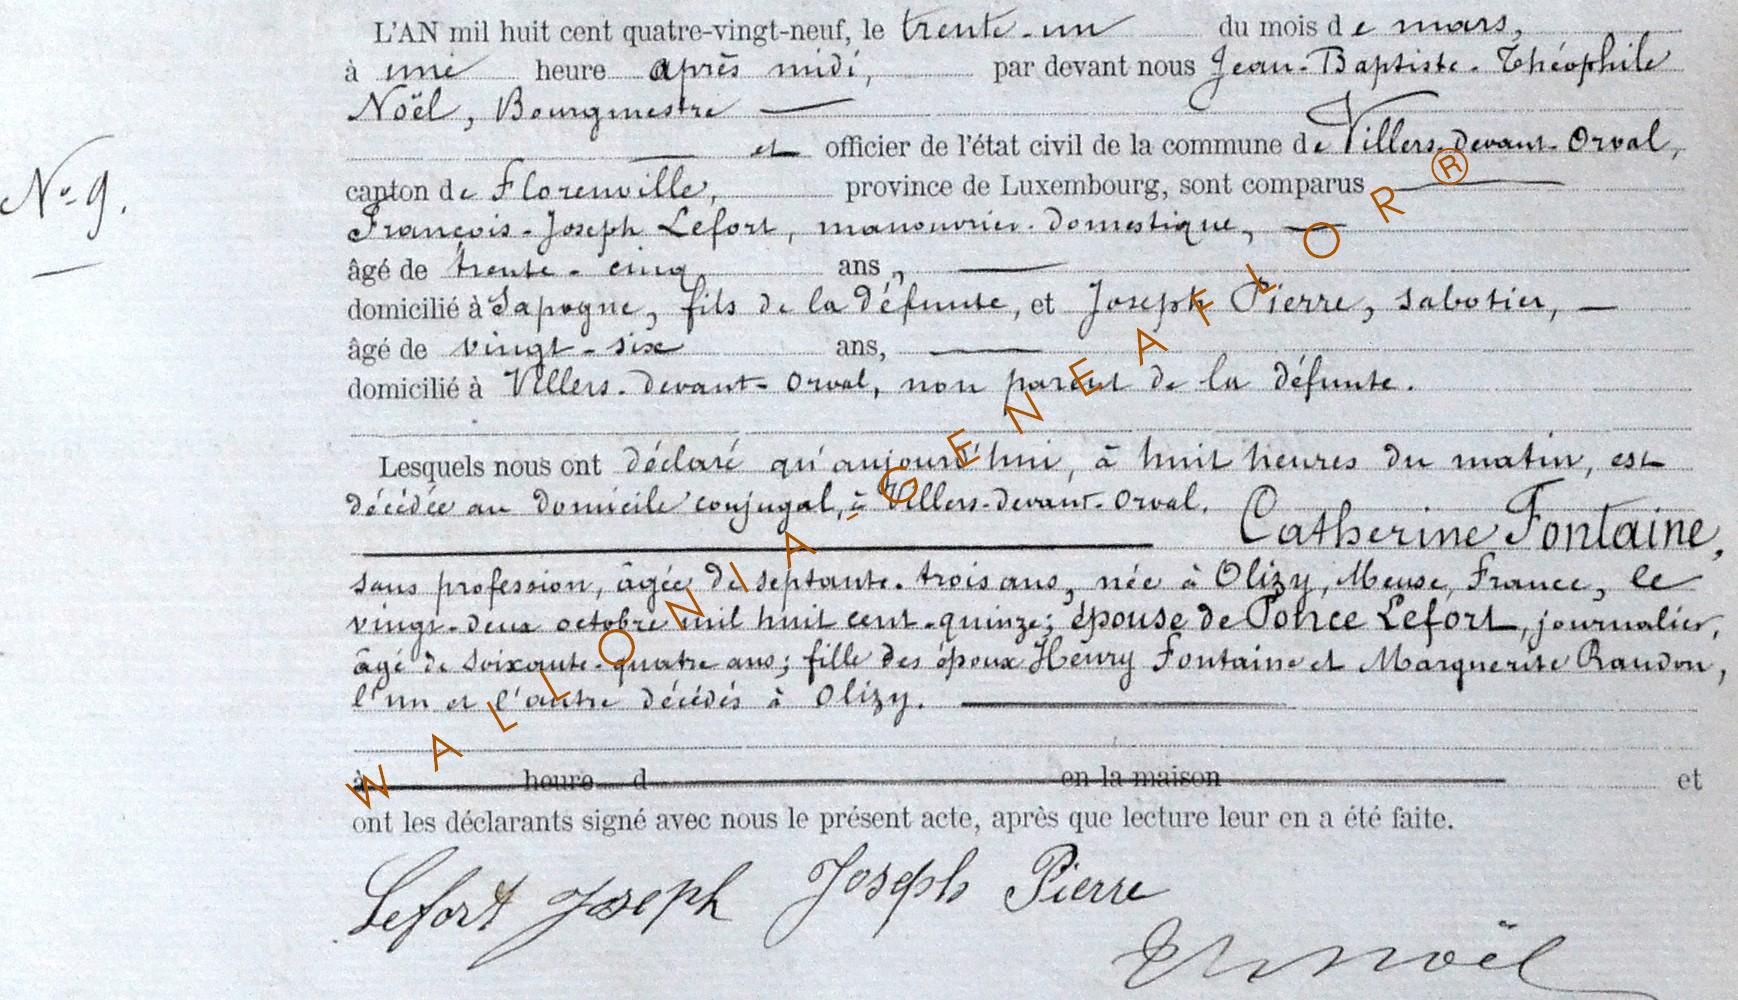 L'AN mil huit cent quatre-vingt-neuf, le trente-un du mois de mars,
à une heure après midi, par devant nous Jean-Baptiste-Théophile
Noël, Bourgmestre
et officier de l'état civil de la commune de Villers-devant-Orval,
N° 9.
canton de Florenville, province de Luxembourg, sont comparus
François-Joseph Lefort, manouvrier-domestique,
âgé de trente-cinq ans,
domicilié à Sapogne, fils de la défunte, et Joseph Pierre, sabotier,
âgé de vingt-six ans,
domicilié à Villers-devant-Orval, non parent de la défunte.
Lesquels nous ont déclaré qu'aujourd'hui, à huit heures du matin, est
décédée au domicile conjugal, à Villers-devant-Orval. Catherine Fontaine,
sans profession, âgée de septante-trois ans, née à Olizy, Meuse, France, le
vingt-deux octobre mil huit cent-quinze; épouse de Ponce Lefort, journalier,
âgé de soixante-quatre ans; fille des époux Henry Fontaine et Marguerite Raudon,
l'un et l'autre décédés à Olizy.
à heure d en la maison et
ont les déclarants signé avec nous le présent acte, après que lecture leur en a été faite.
Lefort Joseph Joseph Pierre
Th Noël
WALLONIA-GENEAFLOR®